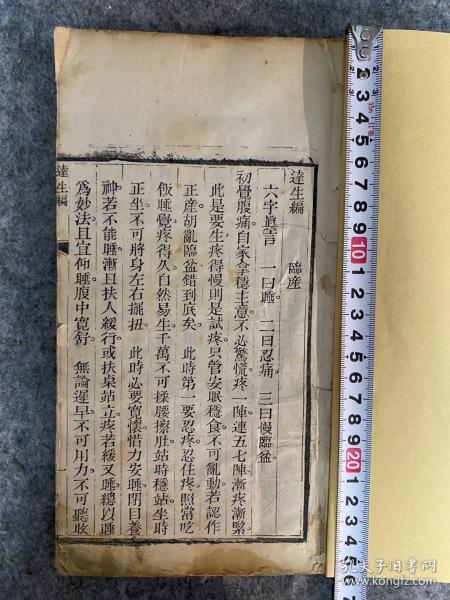 達生編
臨産
六字真言 一曰睡。二曰忍痛。三曰慢臨盆。
初覺腹痛。自家拿穩主意。不必驚慌。疼一陣。連五七陣。漸疼漸緊。
此是要生。疼得慢則是試疼。只管安眠穩食。不可亂動。若認作
正産。胡亂臨盆。錯到底矣。 此時第一要忍疼。忍住疼。照常吃
飯睡覺。疼得久。自然易生。千萬不可揉腰擦肚。站時穩站。坐時
正坐。不可將身左右擺扭。 此時必要寬懷惜力。安睡閉目養
神。若不能睡。漸且扶人緩行。或扶桌站立。疼若緩。又睡。總以睡
爲妙法。且宜仰睡。腹中寬舒。 無論遲早。不可用力。不可聽收
達生編
2 3 4 5 6 7 8 9 10 1 2 3 4 5 6 7 8 9 20 1 2 3 4 5
孔夫子旧书网